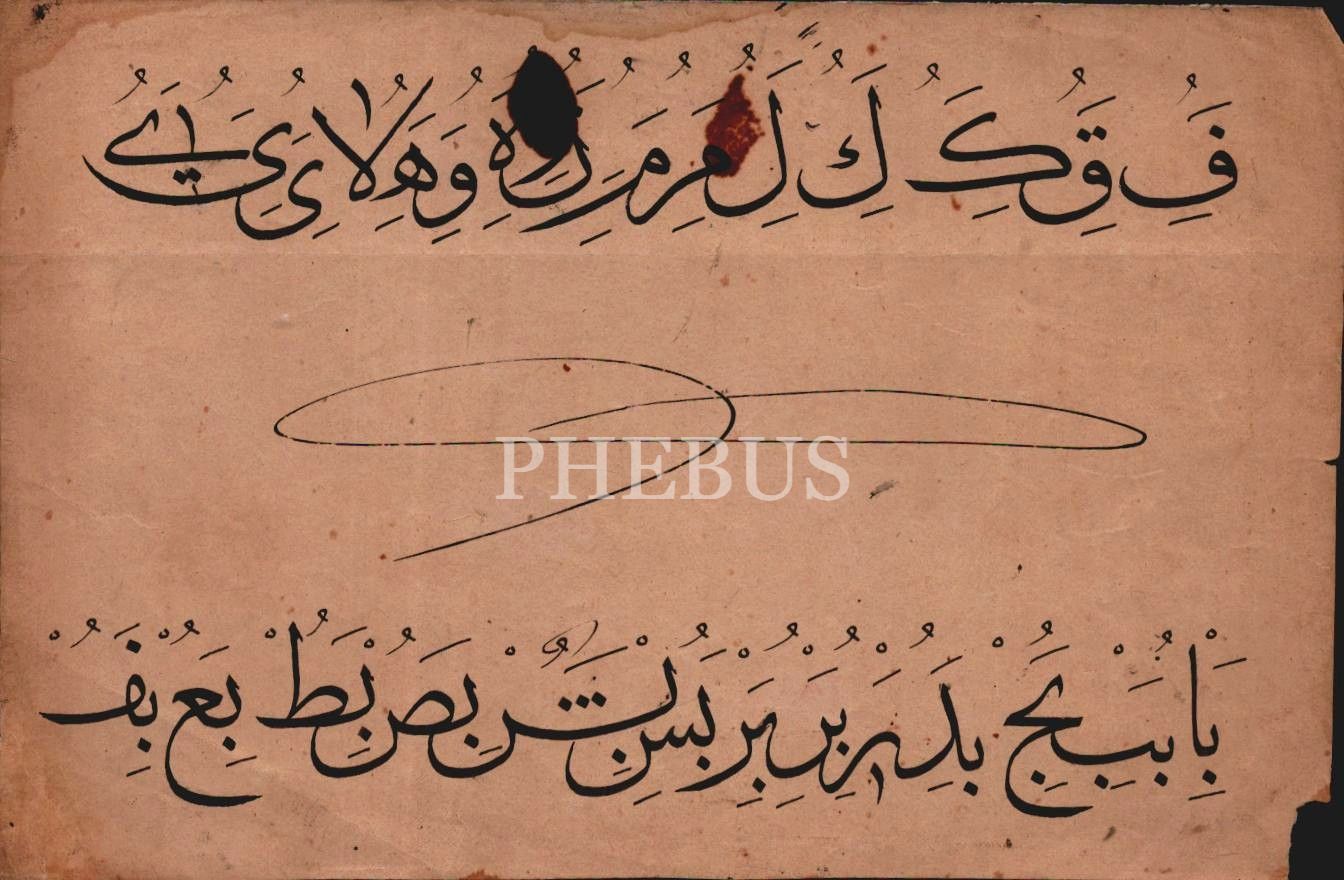 ف ق ك ك ل م م ه و ه لا ى ے
PHEBUS
با بب بج بد بر بر بر بس بش بص بط بع بف